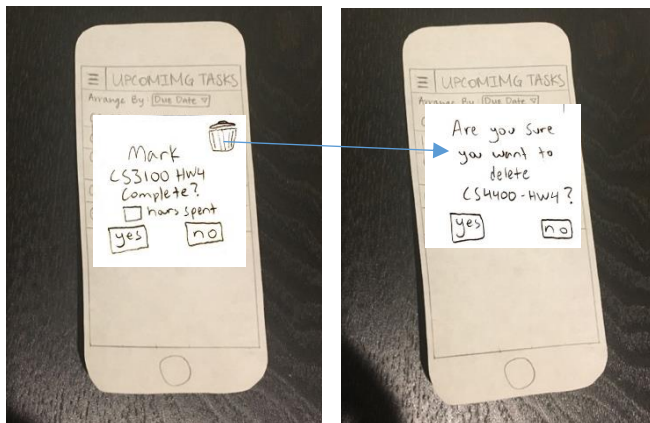 UPCOMIMG TASKS
Arrange By: Due Date
Mark
CS3100 HW4
Complete?
hours spent
yes no
UPCOMIMG TASKS
Arrange By: Due Date
Are you sure
you want to
delete
CS4400-HW4?
yes no